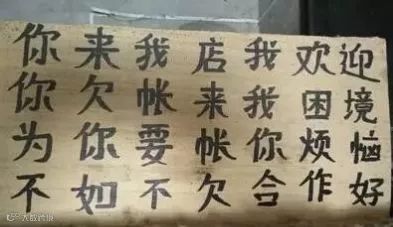 你来我店我欢迎
你欠帐来我困境
为你要帐你烦恼
不如不欠合作好
大数跨境